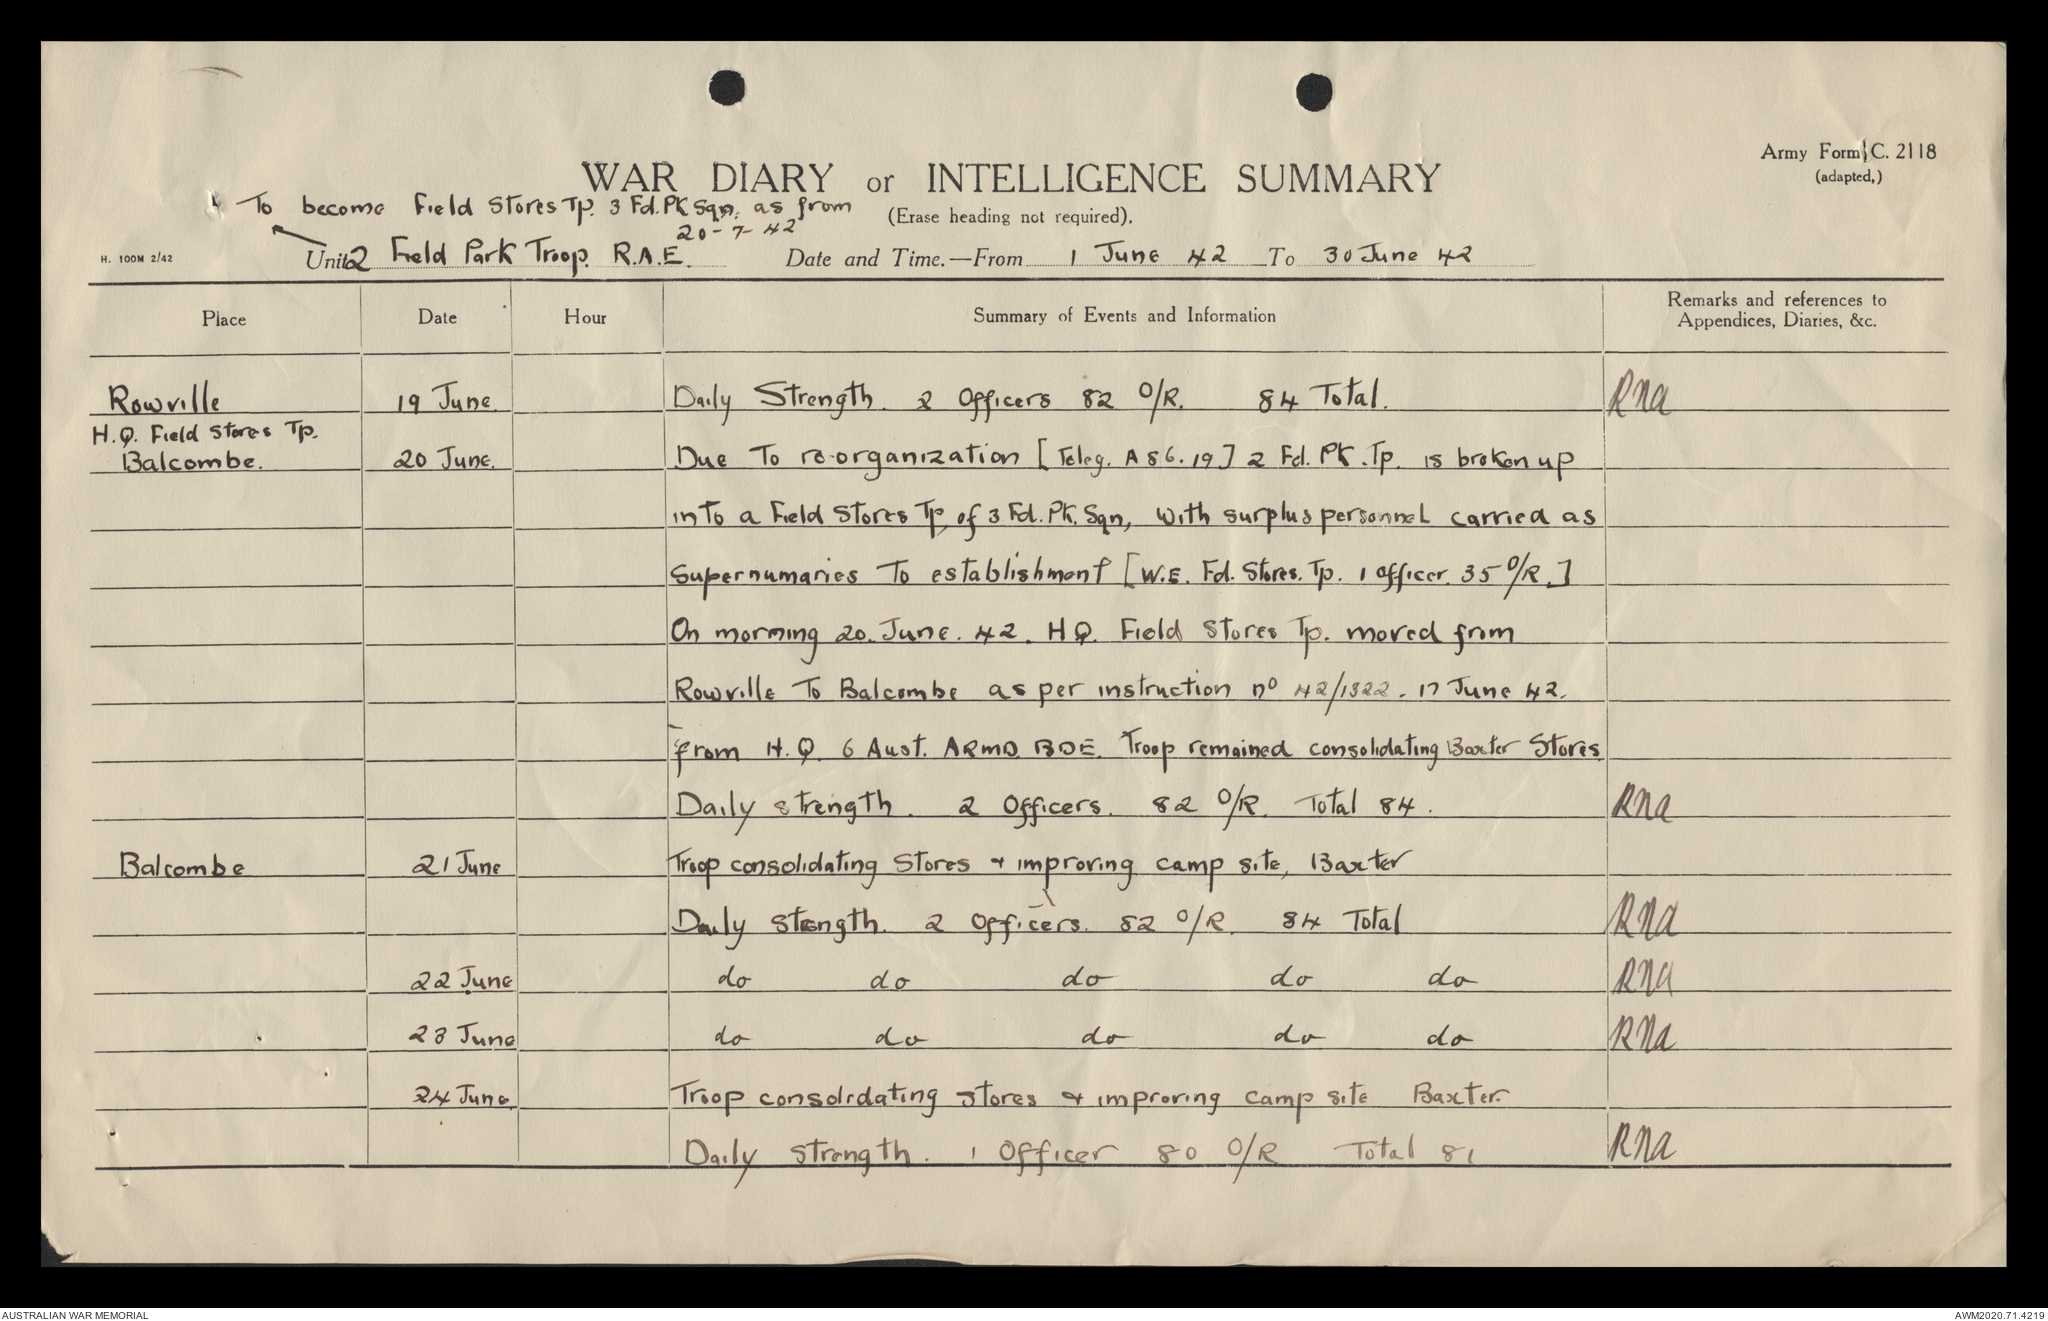 Army Form C. 2118
(adapted,)
WAR DIARY or INTELLIGENCE SUMMARY
(Erase heading not required).
To become Field Stores Tp. 3 Fd. PK Sqn. as from
20-7-42
H. 100M 2/42
Unit 2 Field Park Troop. R.A.E. Date and Time.—From 1 June 42 To 30 June 42
Place Date Hour Summary of Events and Information Remarks and references to Appendices, Diaries, &c.
Rowville 19 June Daily Strength. 2 Officers 82 O/R. 84 Total. RNA
H.Q. Field Stores Tp.
Balcombe. 20 June. Due To re-organization [Teleg. A 86. 19] 2 Fd. PK. Tp. is broken up
into a Field Stores Tp of 3 Fd. Pk. Sqn, with surplus personnel carried as
Supernumaries To establishment [W.E. Fd. Stores. Tp. 1 Officer. 35 O/R.]
On morning 20. June. 42. H Q. Field Stores Tp. moved from
Rowville To Balcombe as per instruction no 42/1322. 17 June 42.
from H.Q. 6 Aust. ARMD BDE. Troop remained consolidating Baxter Stores
Daily strength. 2 Officers. 82 O/R. Total 84. RNA
Balcombe 21 June Troop consolidating Stores + improving camp site, Baxter
Daily strength. 2 Officers. 82 O/R. 84 Total RNA
22 June do do do do do RNA
23 June do do do do do RNA
24 June Troop consolidating stores + improving camp site Baxter.
Daily strength. 1 Officer 80 O/R Total 81 RNA
AUSTRALIAN WAR MEMORIAL
AWM2020.71.4219